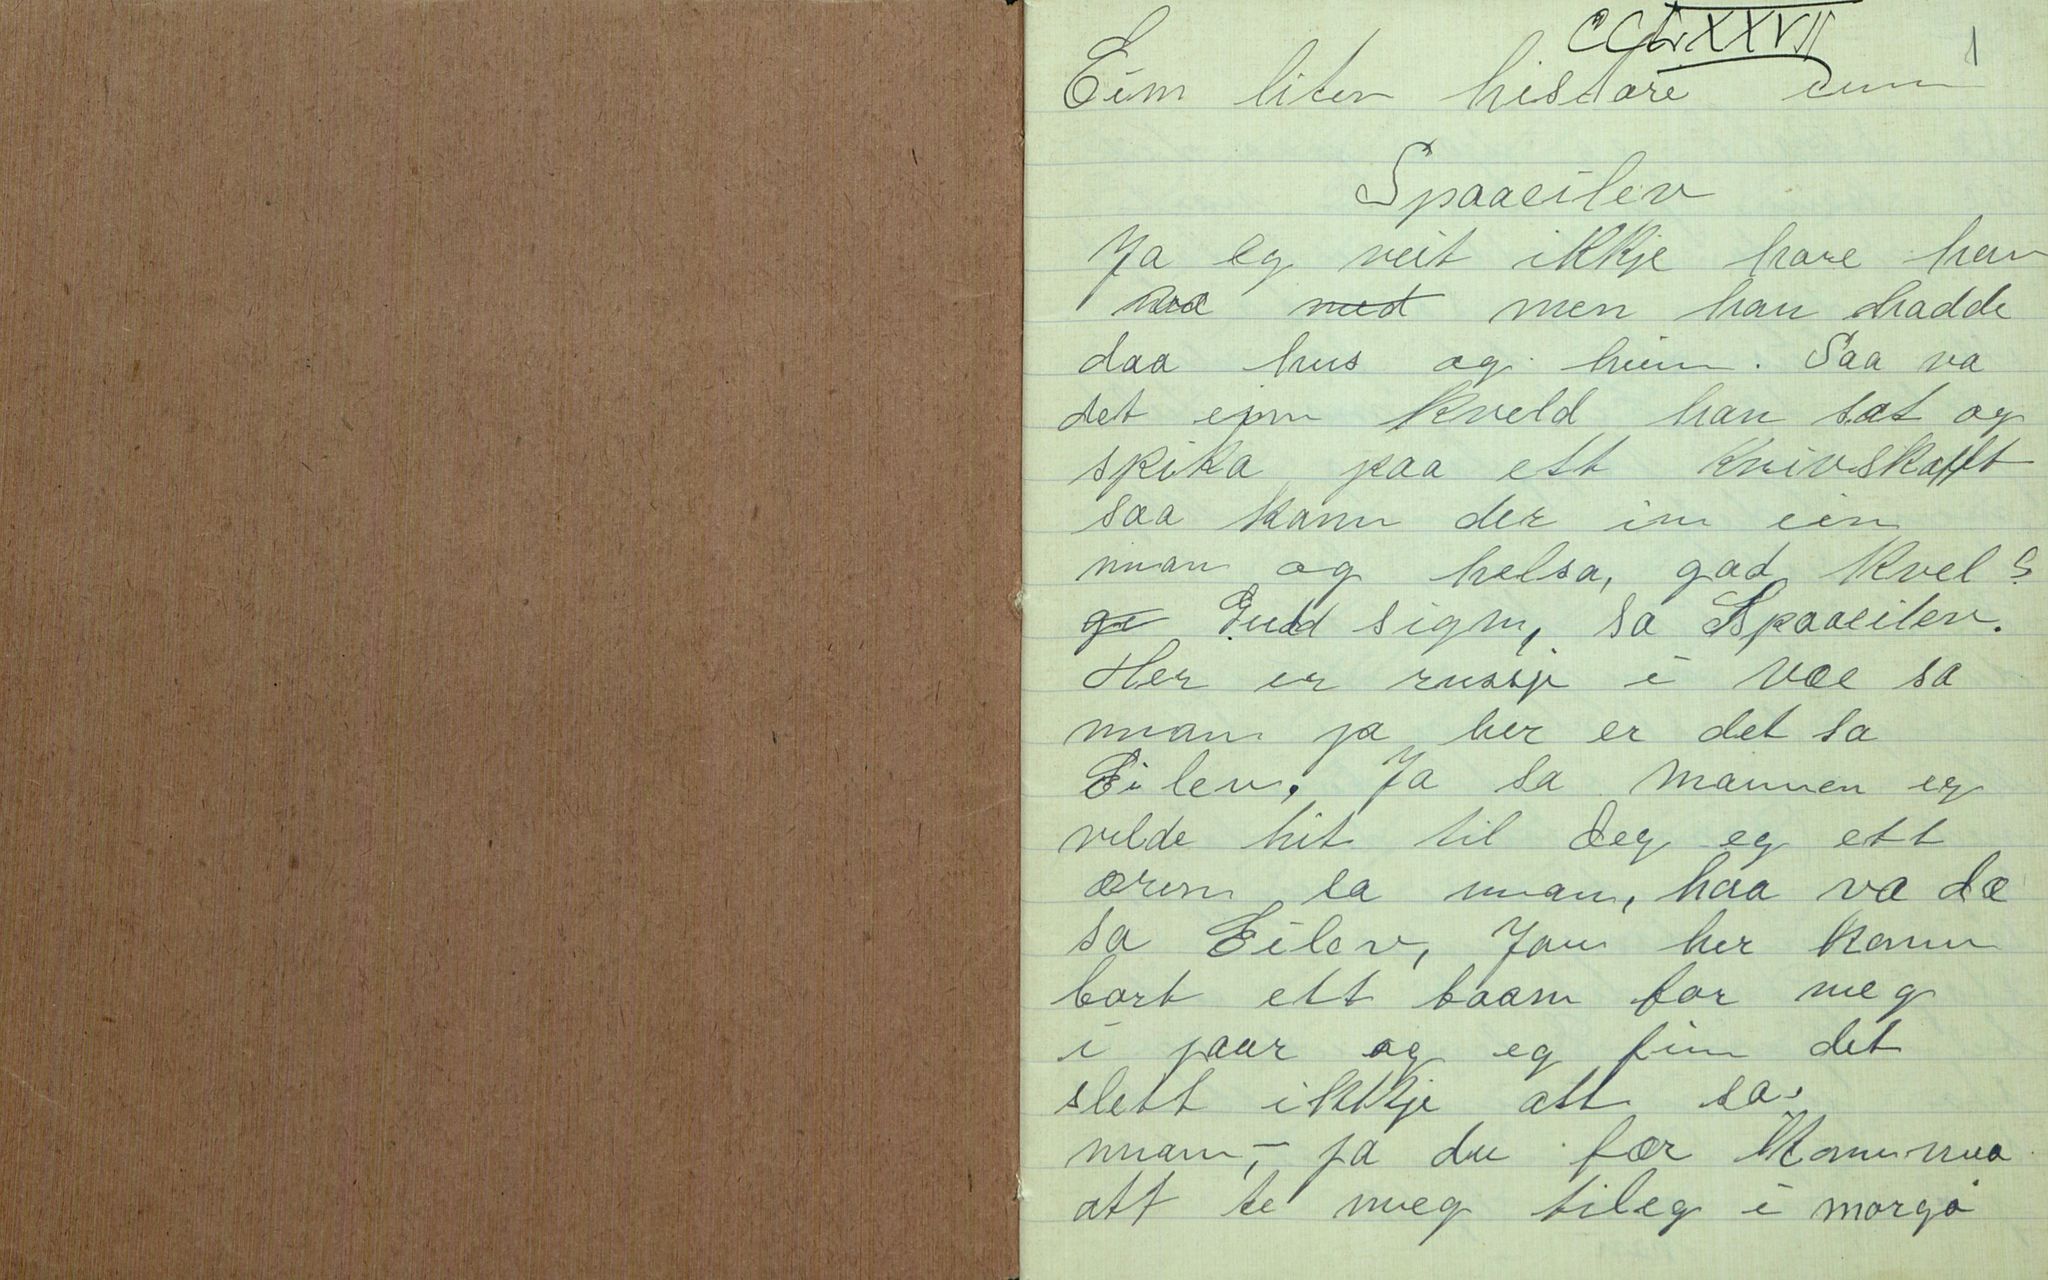 CCLXXVII 1
Ein liten histore um
Spaaeilev
Ja eg veit ikkje hare han
va med men han hadde
daa hus og heim. Saa va
det einn kveld han sat og
spika paa ett knivskafft
saa kamm der inn ein
mann og helsa, god kvel
ge Gudd sign, sa Spaaeilev.
Her er russje i væe sa
mann ja her er det sa
Eilev. Ja sa mannen eg
vilde hit til deg eg ett
æren sa mann, haa va dæ
sa Eilev, Jau her kamm
bort ett baan for meg
i jaar og eg finn det
slett ikkje att sa
mann, – ja du fær komma
att te meg tileg i morgo